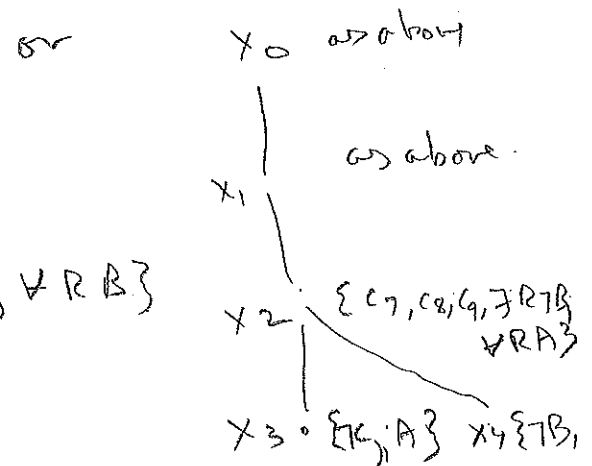 or x0 as above
as above.
x1
, ∀RB}
x2 {C7, C8, C9, ∃R¬B,
∀RA}
x3 {¬C, A} x4 {¬B,